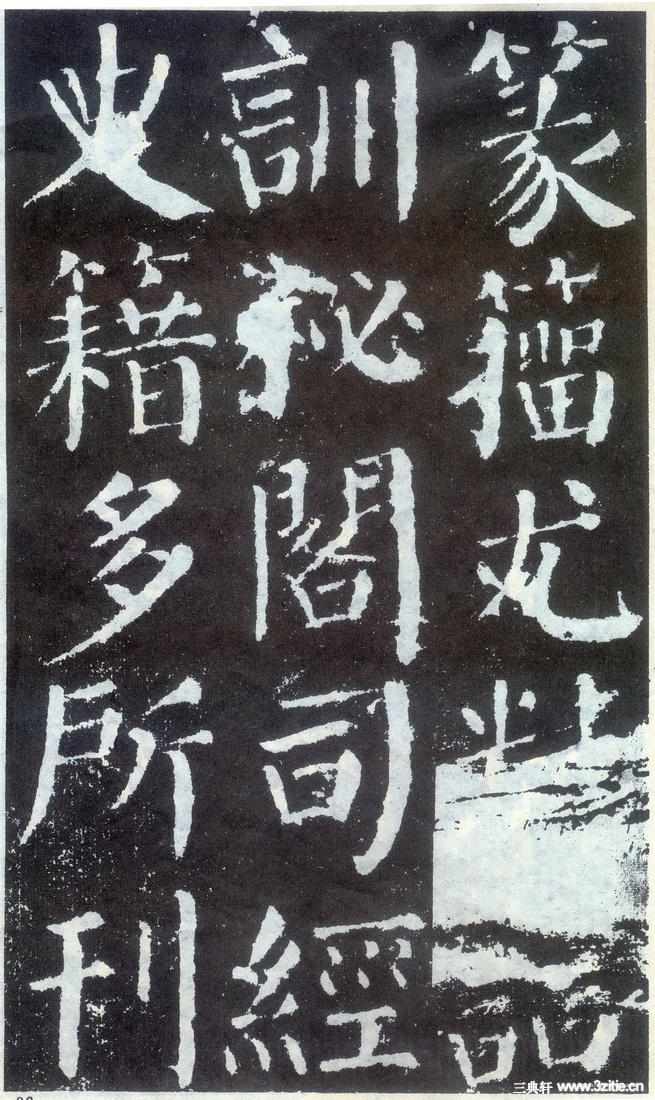 篆籀尤精詁
訓秘閣司經
史籍多所刊
三典轩 www.3zitie.cn